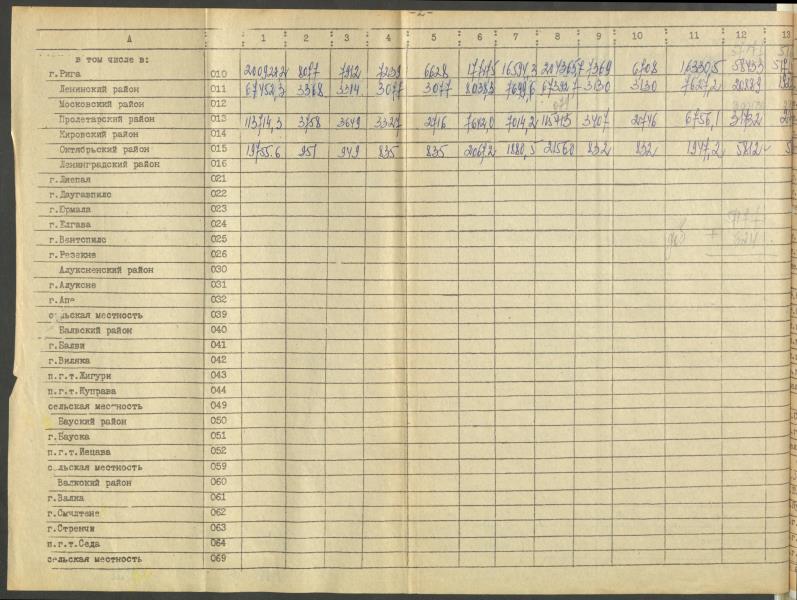 -2-
А 1 2 3 4 5 6 7 8 9 10 11 12 13
в том числе в:
г.Рига 010 7912 7239 6628 7369 6708 16330,5 58433
Ленинский район 011 67452,3 3368 3314 3077 3077 8038,3 7699,6 67392,7 3130 3130 7627,2 20889
Московский район 012
Пролетарский район 013 113714,3 3758 3649 3327 2716 7612,0 7014,2 3407 2746 6756,1 31732
Кировский район 014
Октябрьский район 015 19755.6 951 949 835 835 2067,2 1880,5 21560 832 832 1947,2 5812
Ленинградский район 016
г.Лиепая 021
г.Даугавпилс 022
г.Юрмала 023
г.Елгава 024
г.Вентспилс 025
г.Резекне 026
Алуксненский район 030
г.Алуксне 031
г.Апе 032
сельская местность 039
Балвский район 040
г.Балви 041
г.Виляка 042
п.г.т.Жигури 043
п.г.т.Куправа 044
сельская местность 049
Бауский район 050
г.Бауска 051
п.г.т.Иецава 052
сельская местность 059
Валкский район 060
г.Валка 061
г.Смилтене 062
г.Стренчи 063
п.г.т.Седа 064
сельская местность 069